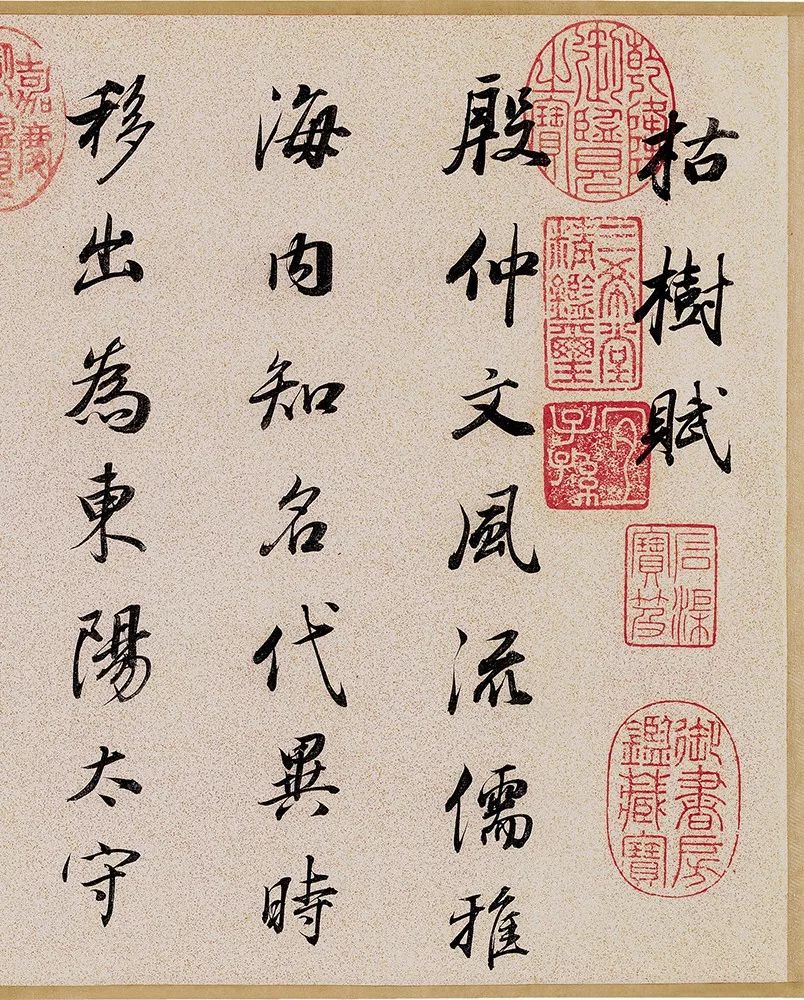 枯樹賦
乾隆
御覽
之寶
三希堂
精鑑璽
宜
子孫
石渠
寶笈
御書房
鑑藏寶
殷仲文風流儒雅
海内知名代異時
移出為東陽太守
嘉慶